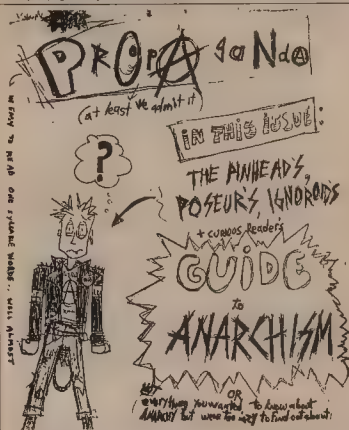 PROPAgaNda
(at least we admit it)
IN THIS ISSUE:
THE PINHEAD'S,
POSEUR'S, IGNOROID'S
+ curious Reader's
GUIDE
to
ANARCHISM
OR
everything You wanted to know about
ANARCHY but were too lazy to find out about!
?
A
EASY TO READ ONE SYLLABLE WORDS.. WELL ALMOST